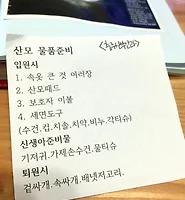 산모 물품준비
입원시
1. 속옷 큰 것 여러장
2. 산모패드
3. 보호자 이불
4. 세면도구
(수건.컵.치솔.치약.비누.각티슈)
신생아준비물
기저귀.가제손수건.물티슈
퇴원시
겉싸개.속싸개.배냇저고리.